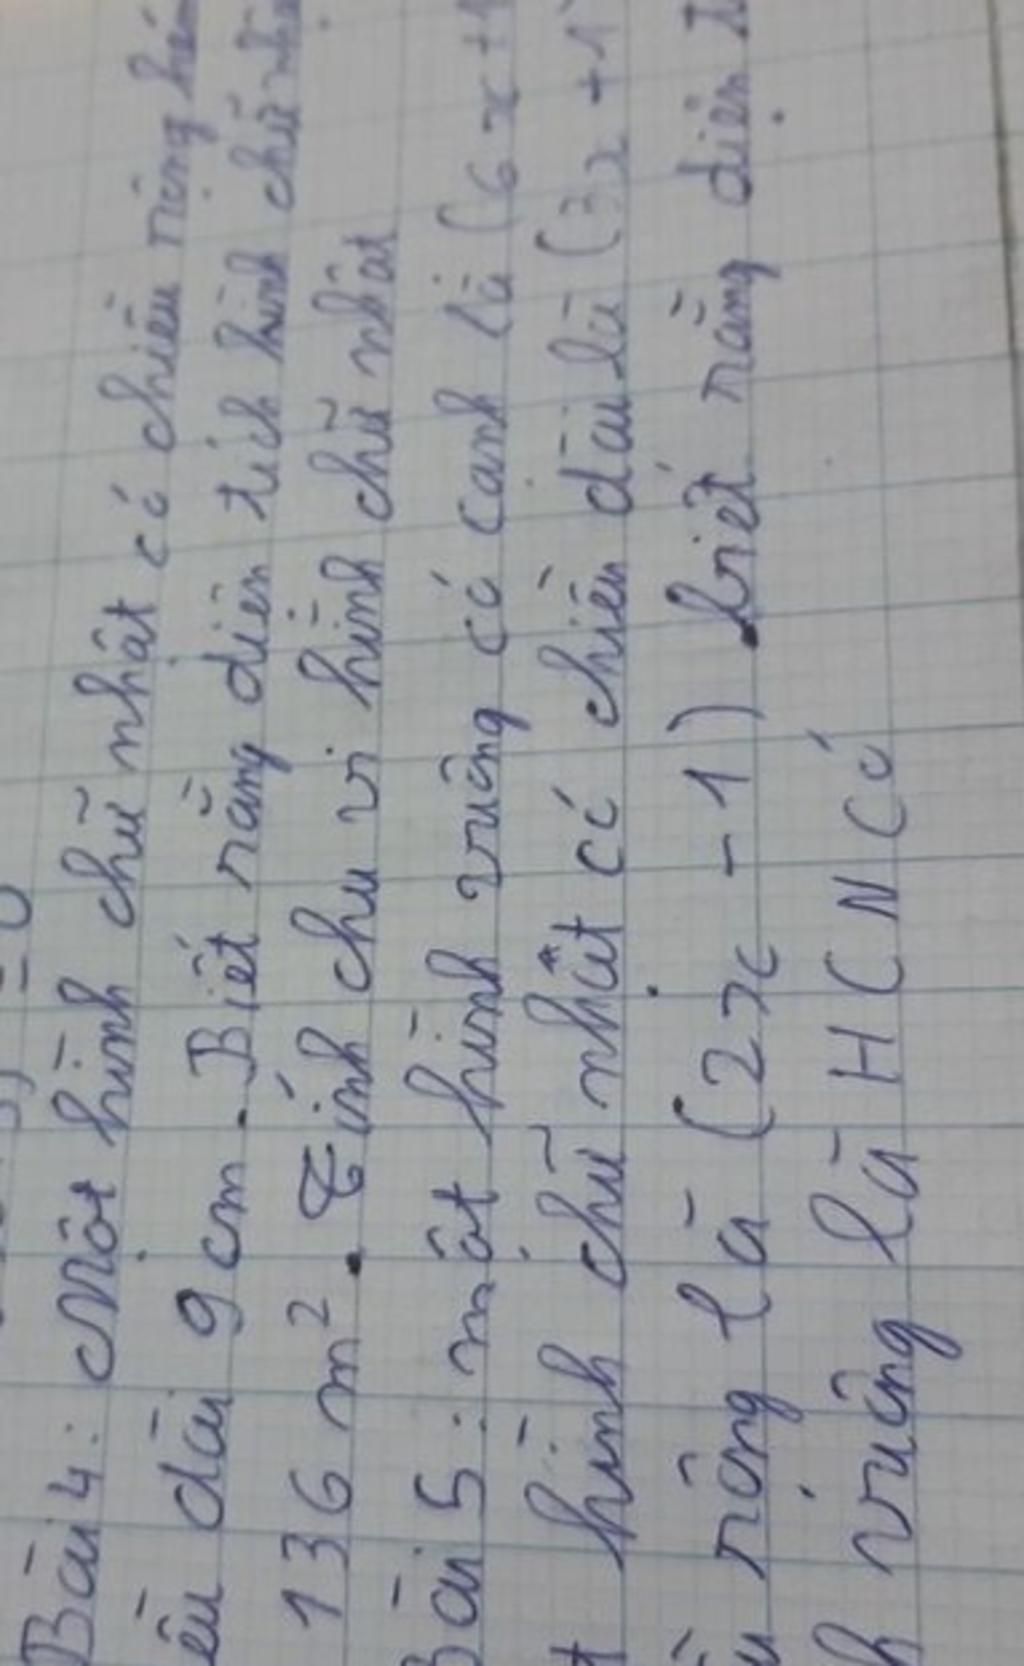 Bài 4: Một hình chữ nhật có chiều rộng kém
ều dài 9 cm. Biết rằng diện tích hình chữ nhậ
136 m². Tính chu vi hình chữ nhât
Bài 5: một hình vuông có canh là (6x+1
t hình chữ nhât có chiều dài là (3x+1
ều rông là (2x-1) biết rằng diện t
h vuông là HCN Có